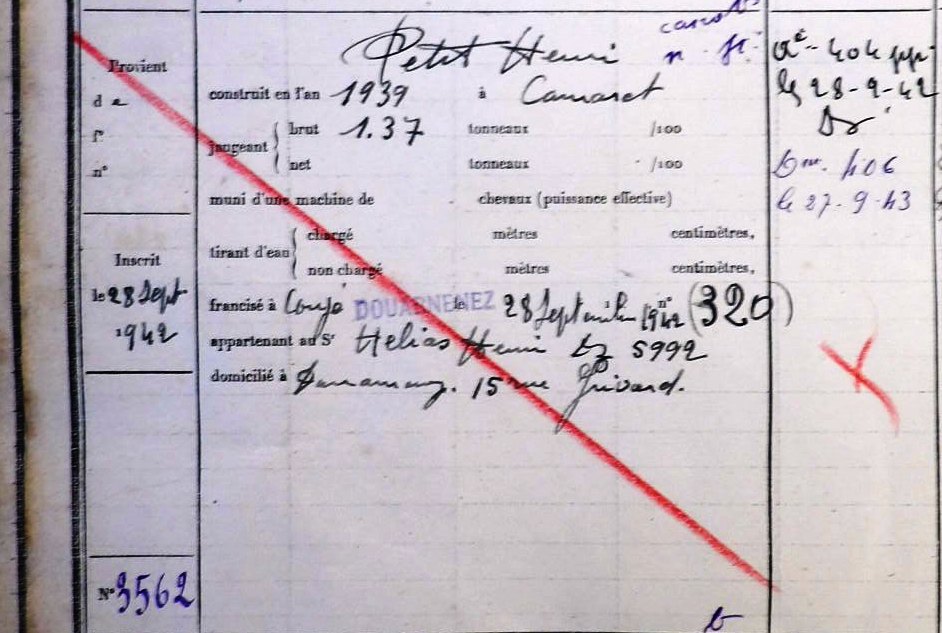 Provient
de
f°
n°
Inscrit
le 28 Sept
1942
N° 3562
Petit Henri
canot
n. fr.
construit en l'an 1939 à Camaret
jaugeant { brut 1.37 tonneaux /100
net tonneaux /100
muni d'une machine de chevaux (puissance effective)
tirant d'eau { chargé mètres centimètres,
non chargé mètres centimètres,
francisé à DOUARNENEZ le 28 Septembre 1942 n° (320)
appartenant au Sr Hélias Henri Dz 5992
domicilié à Douarnenez. 15 rue
404
le 28-9-42
Dz
406
le 27-9-43